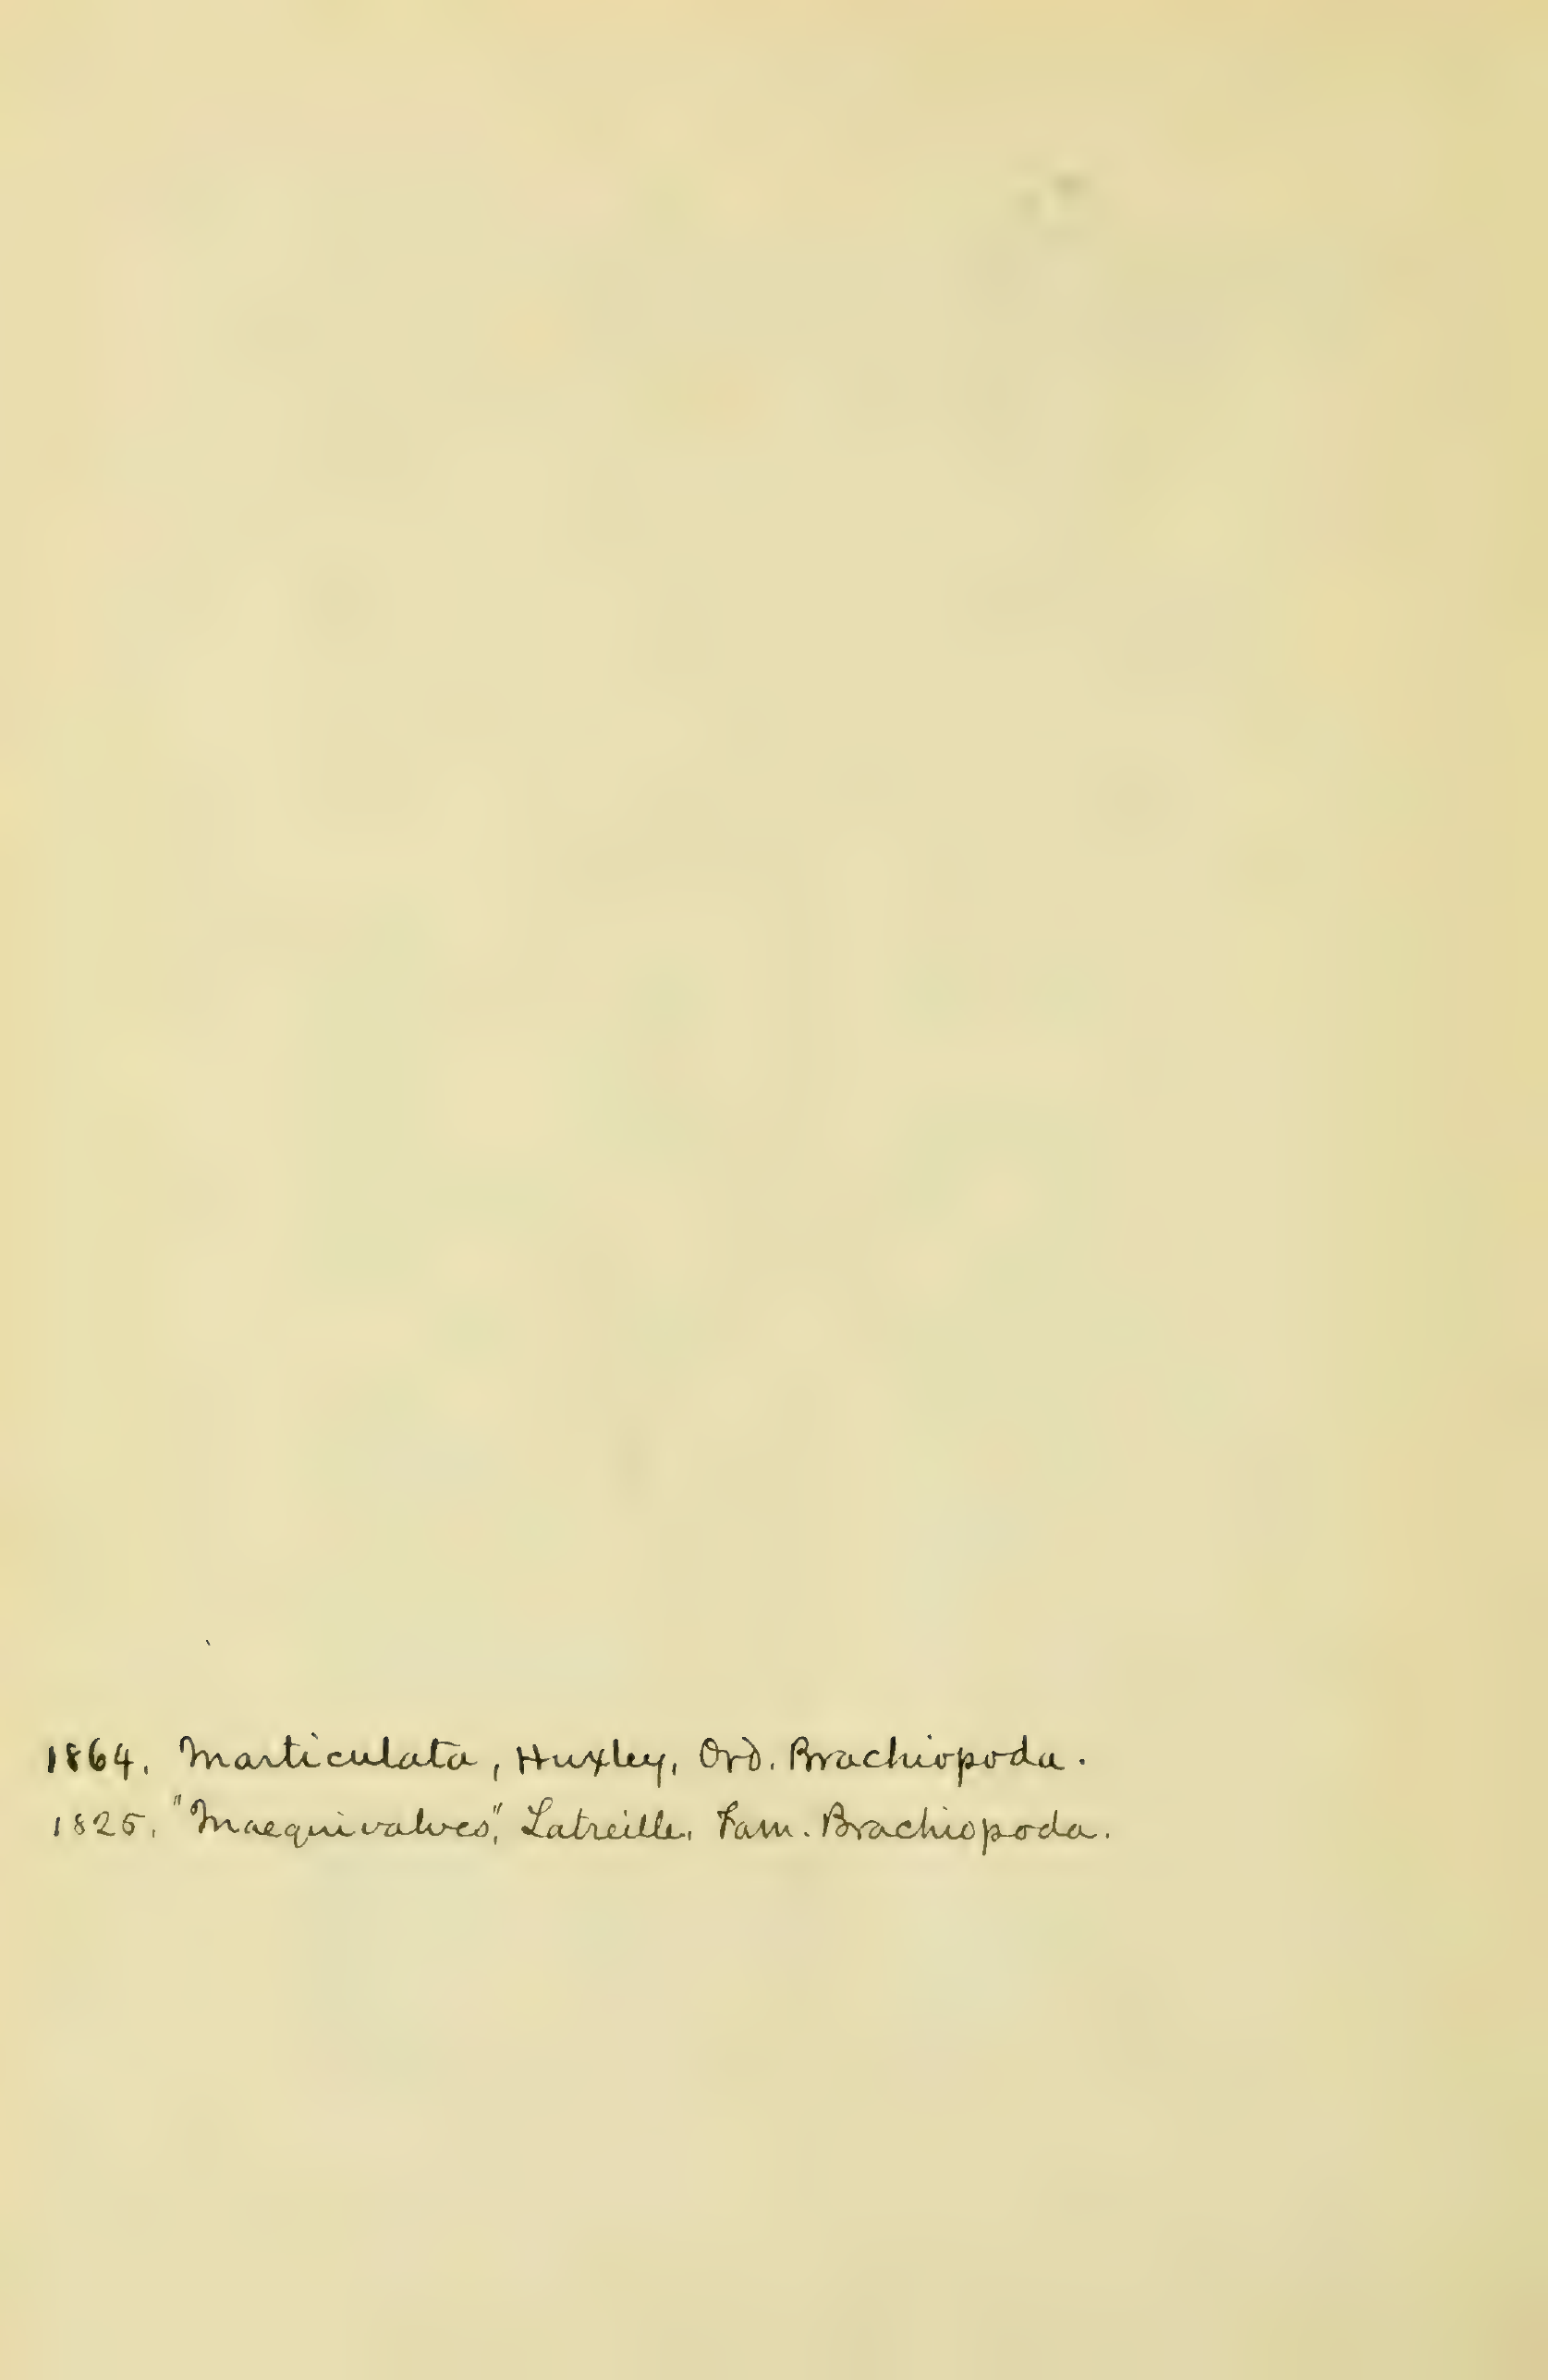 1864. Inarticulata, Huxley, Ord. Brachiopoda.
1825. "Inaequivalves," Latreille, Fam. Brachiopoda.